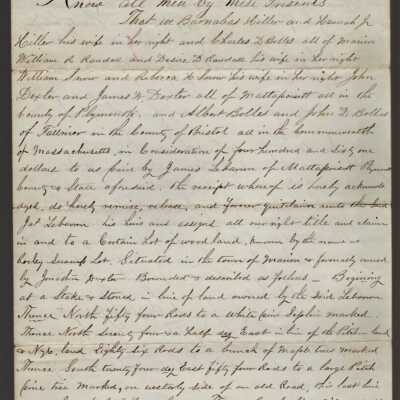 Know all men by these Presents
That we Barnabas Hiller and Hannah J
Hiller his wife in her right and Charles D Bolles all of Marion
William R Randall and Desire D Randall his wife in her right
William Snow and Rebecca H Snow his wife in her right John
Dexter and James W Dexter all of Mattapoisett all in the
County of Plymouth. and Albert Bolles and John D Bolles
of in the County of Bristol all in the Commonwealth
of Massachusetts, in Consideration of four Hundred and Sixty one
dollars to us paid by James Lebaron of Mattapoisett
County & State aforesaid, the receipt whereof is hereby acknowl
edged, do hereby remise, release, and forever quitclaim unto the said
Jas Lebaron his heirs and assigns all our right title and claim
in and to a Certain Lot of wood land, known by the name as
Swamp Lot. Situated in the town of Marion & formerly owned
by Dexter Bounded & described as follows — Begining
at a Stake & Stones in line of land owned by the said Lebaron
Thence North Fifty four Rods to a White pine marked
Thence North Seventy four & a half deg East in line of the land
& Nye land Eighty six Rods to a bunch of Maple trees marked
Thence South twenty four deg East fifty four Rods to a large Pitch
pine tree marked, on westerly side of an old Road, this last line